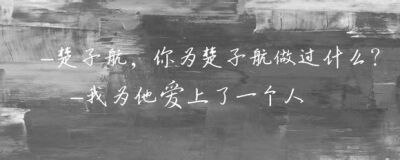 -楚子航，你为楚子航做过什么？
-我为他爱上了一个人